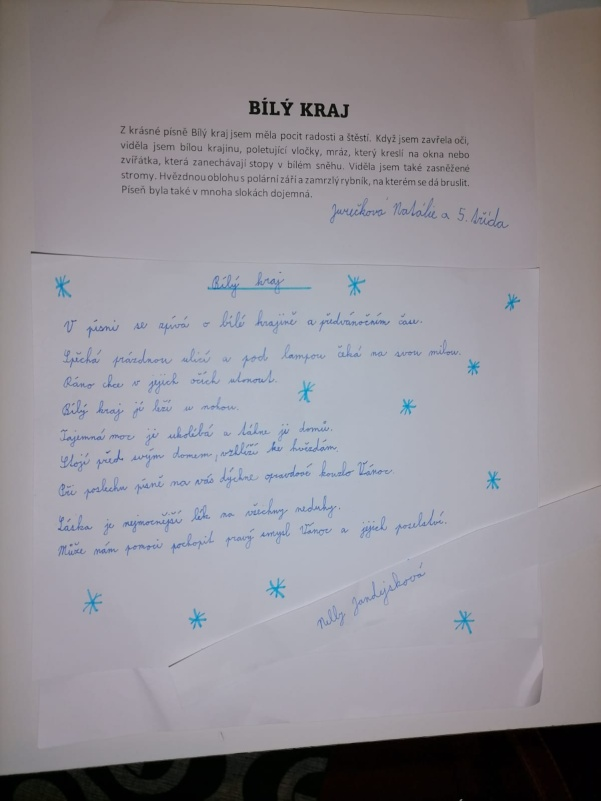 BÍLÝ KRAJ
Z krásné písně Bílý kraj jsem měla pocit radosti a štěstí. Když jsem zavřela oči,
viděla jsem bílou krajinu, poletující vločky, mráz, který kreslí na okna nebo
zvířátka, která zanechávají stopy v bílém sněhu. Viděla jsem také zasněžené
stromy. Hvězdnou oblohu s polární září a zamrzlý rybník, na kterém se dá bruslit.
Píseň byla také v mnoha slokách dojemná.
Jurečková Natálie a 5. třída
Bílý kraj
V písni se zpívá o bílé krajině a předvánočním čase.
Spěchá prázdnou ulicí a pod lampou čeká na svou milou.
Ráno chce v jejich očích utonout.
Bílý kraj jí leží u nohou.
Tajemná moc je ukolébá a táhne ji domů.
Stojí před svým domem, vzhlíží ke hvězdám.
Při poslechu písně na vás dýchne opravdové kouzlo Vánoc.
Láska je nejmocnější lék na všechny neduhy.
Může nám pomoci pochopit pravý smysl Vánoc a jejich poselství.
Nelly Jandejsková